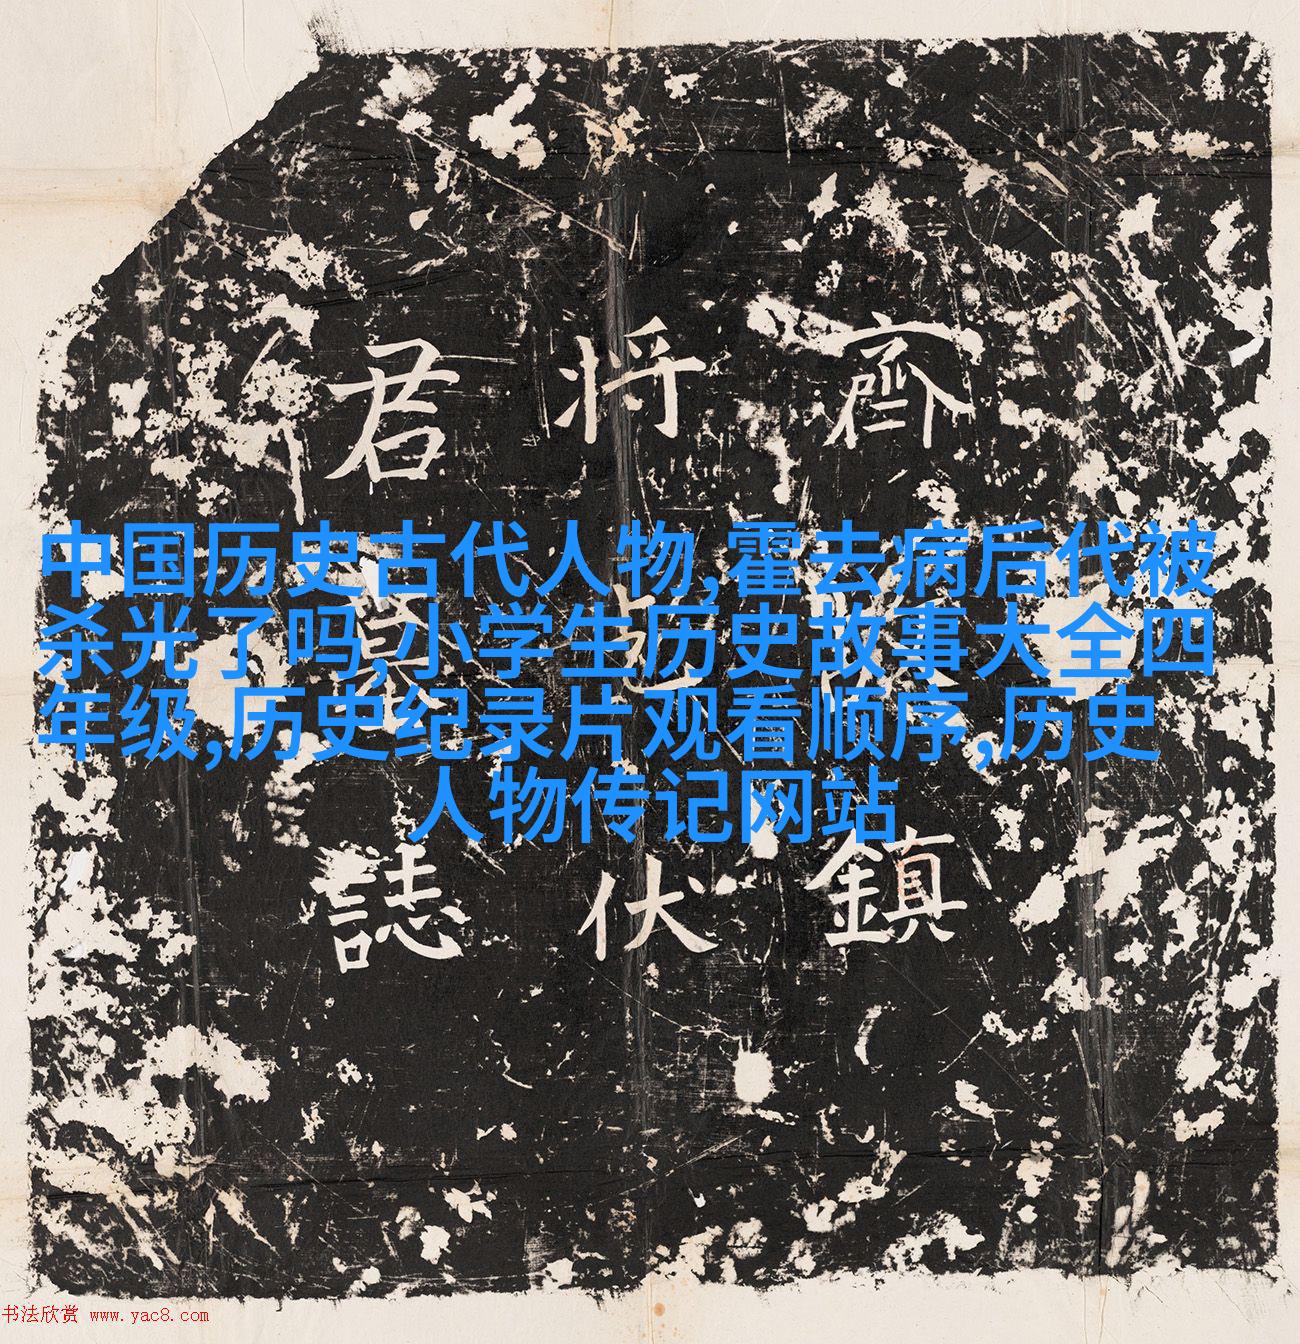 中国历史古代人物,霍去病后代被
杀光了吗,小学生历史故事大全四
年级,历史纪录片观看顺序,历史
人物传记网站
齊 鎮
将 伏
君墓誌
书法欣赏 www.yac8.com